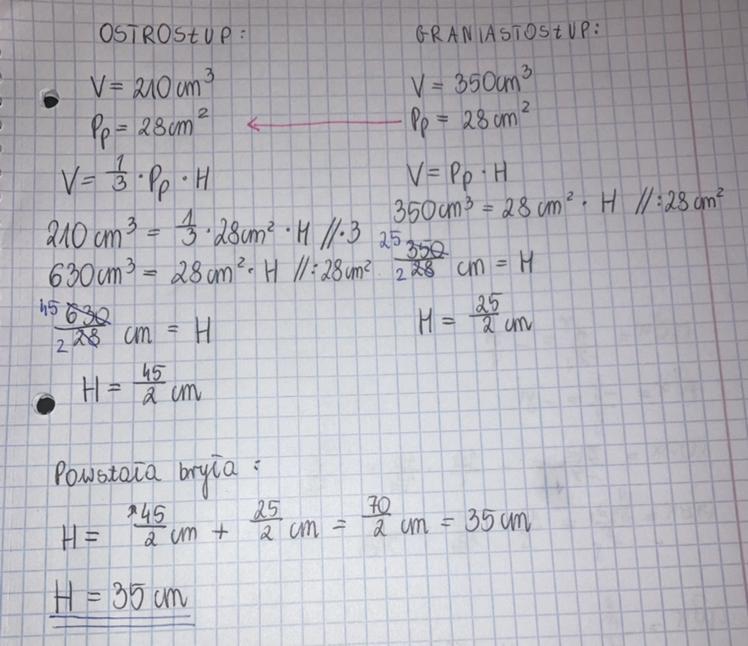 OSTROSŁUP:
V = 210 cm³
Pp = 28 cm²
V = 1/3 · Pp · H
210 cm³ = 1/3 · 28 cm² · H //·3
630 cm³ = 28 cm² · H //:28 cm²
45 630/2 28 cm = H
H = 45/2 cm
GRANIASTOSŁUP:
V = 350 cm³
Pp = 28 cm²
V = Pp · H
350 cm³ = 28 cm² · H //:28 cm²
25 350/2 28 cm = H
H = 25/2 cm
Powstała bryła:
H = 45/2 cm + 25/2 cm = 70/2 cm = 35 cm
H = 35 cm